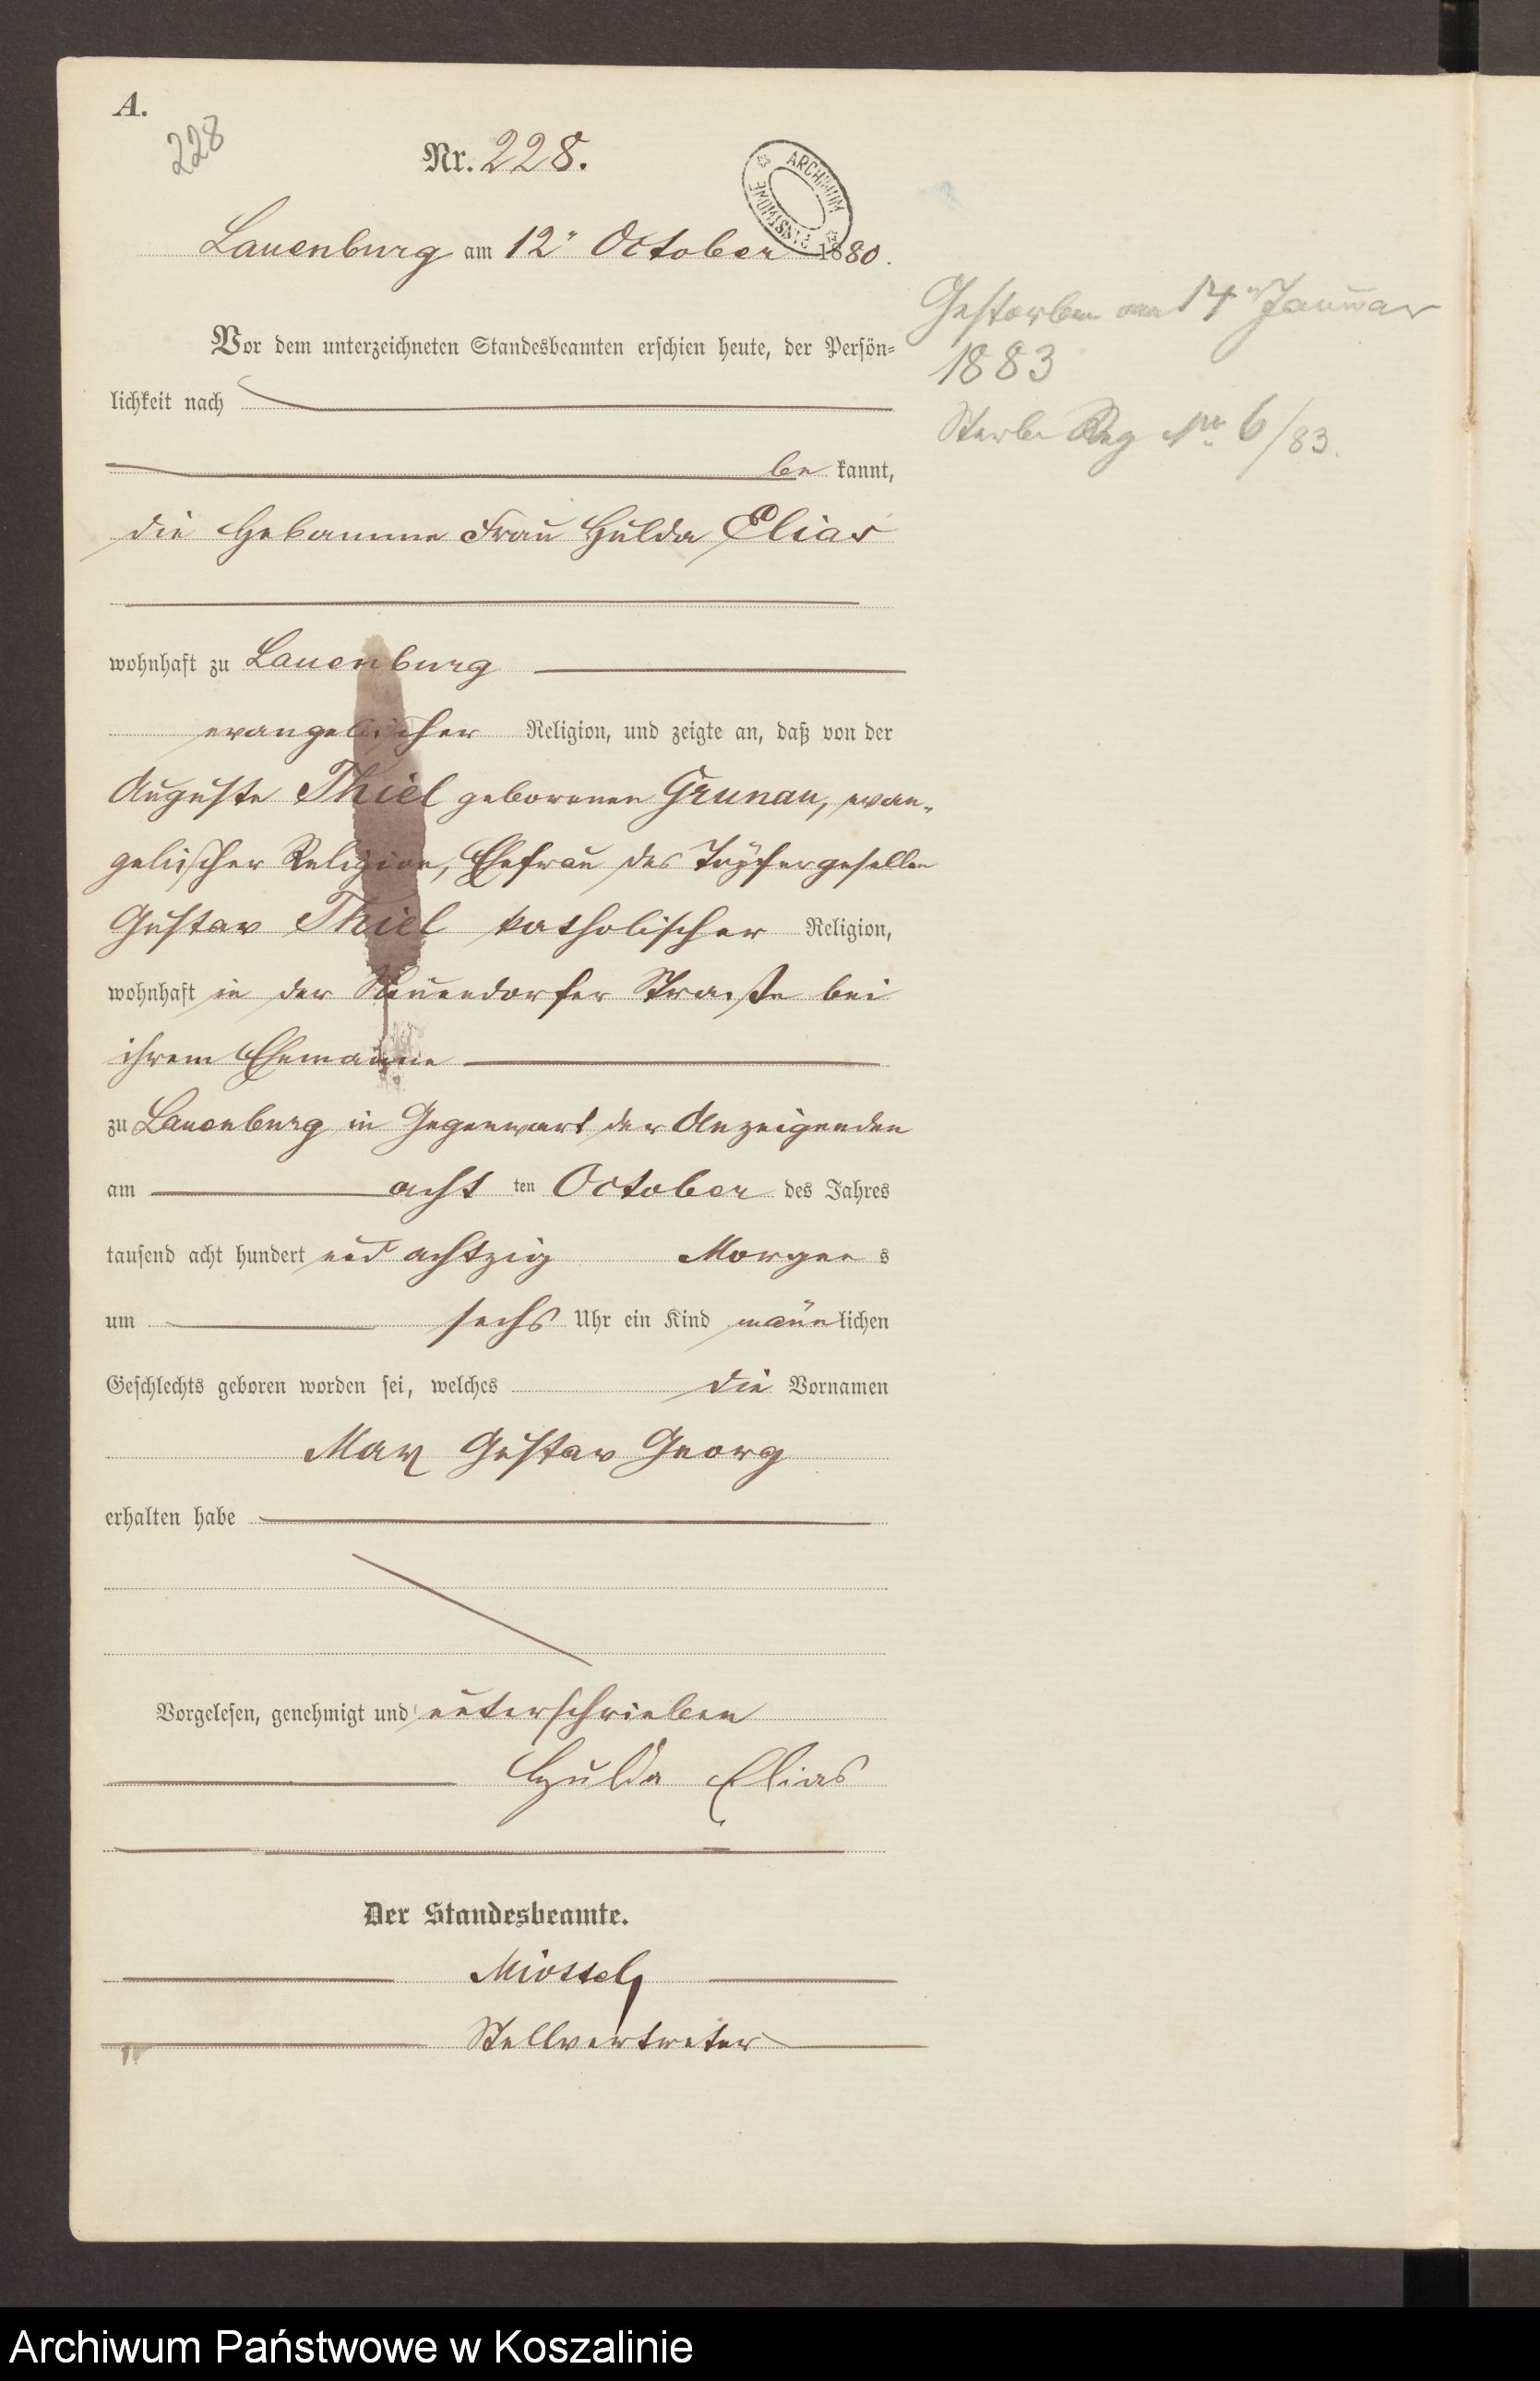 A.
228
Nr. 228.
ARCHIWUM PAŃSTWOWE
Lauenburg am 12" October 1880.
Vor dem unterzeichneten Standesbeamten erschien heute, der Persön-
lichkeit nach
be kannt,
die Hebamme Frau Hulda Elias
wohnhaft zu Lauenburg
evangelischer Religion, und zeigte an, daß von der
Auguste Thiel geborenen Grunau, evan-
gelischer Religion, Ehefrau des Töpfergesellen
Gustav Thiel katholischer Religion,
wohnhaft in der Neuendorfer Straße bei
ihrem Ehemanne
zu Lauenburg in Gegenwart der Anzeigenden
am acht ten October des Jahres
tausend acht hundert und achtzig Morgen s
um sechs Uhr ein Kind männlichen
Geschlechts geboren worden sei, welches die Vornamen
Max Gustav Georg
erhalten habe
Vorgelesen, genehmigt und unterschrieben
Hulda Elias
Der Standesbeamte.
Stellvertreter
Gestorben am 14" Januar
1883
Sterbe Reg No. 6/83.
Archiwum Państwowe w Koszalinie